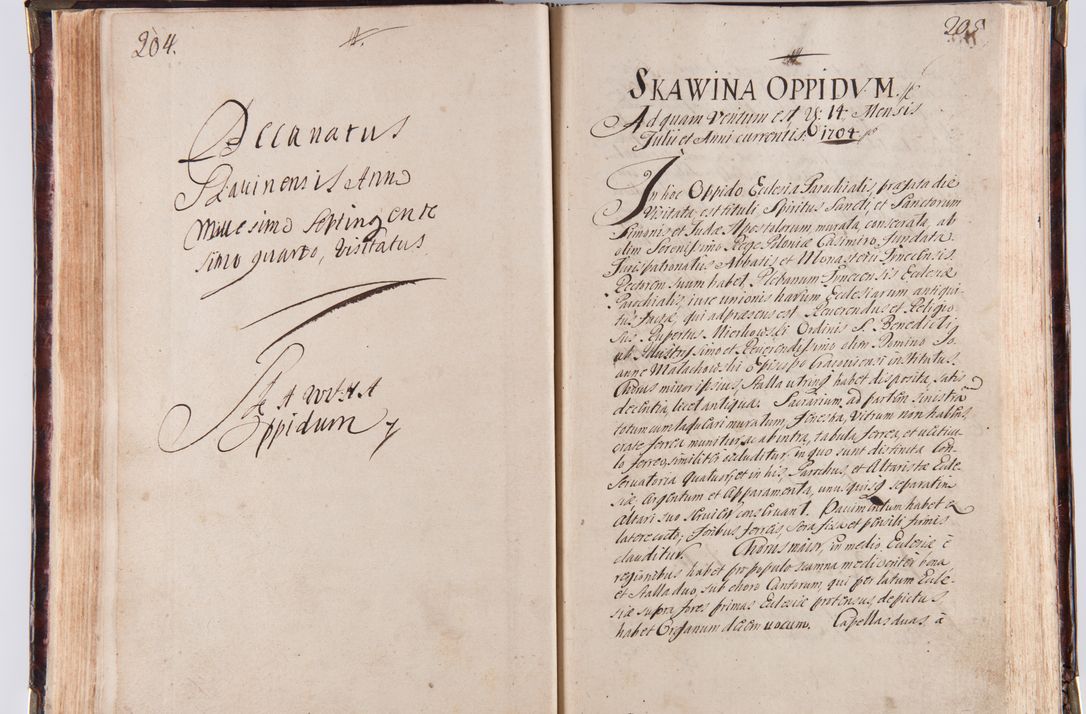 204.
Decanatus
Skavinensis Anno
Millesimo Septingente
simo quarto, Visitatus.
SKAWINA
Oppidum
205
SKAWINA OPPIDVM.
Ad quam ventum est 14 Mensis
Julii et Anni currentis. 1704
In hoc Oppido Ecclesia Parochialis, præfata die
Visitata, est tituli Spiritus Sancti, et Sanctorum
Simonis et Judæ Apostolorum, murata, consecrata, ab
olim Serenissimo Rege Poloniæ Casimiro fundata.
Jurispatronatus Abbatis et Monasterii Tynecensis.
Rectorem suum habet, Plebanum Tynecensis Ecclesiæ
Parochialis, iure unionis harum Ecclesiarum antiqui
tus factæ, qui adpræsens est Reuerendus et Religio
sus Rupertus Mierkowski Ordinis S. Benedicti,
ab Illustrissimo et Reuerendissimo olim Domino Jo
anne Małachowski Episcopo Cracoviensi institutus.
Chorus minor ipsius, Stalla utrinq habet disposita, satis
decentia, licet antiqua. Sacrarium ad partem sinistra
totum cum laqueari muratum, Fenestra, Vitrum non habens,
crate ferrea munitur, ac ab intra, tabula ferrea, et
lo ferreo, similiter occluditur, in quo sunt distincta Con-
seruatoria quatuor, et in his, Parochus, et Altaristæ Eccle-
siæ, Argentum et Apparamenta, unusquisq separatim
Altari suo conseruant. Pauimentum habet e
latere cocto, Foribus ferreis, sera fixa et pensili firmis
clauditur. Chorus maior, in medio Ecclesiæ è
regionibus habet pro populo scamna mediocriter bona
et Stalla duo, sub choro Cantorum, qui per latum Eccle-
siæ supra fores primas Ecclesiæ protensus, depictus
habet Organum decem uocum. Capellas duas, à